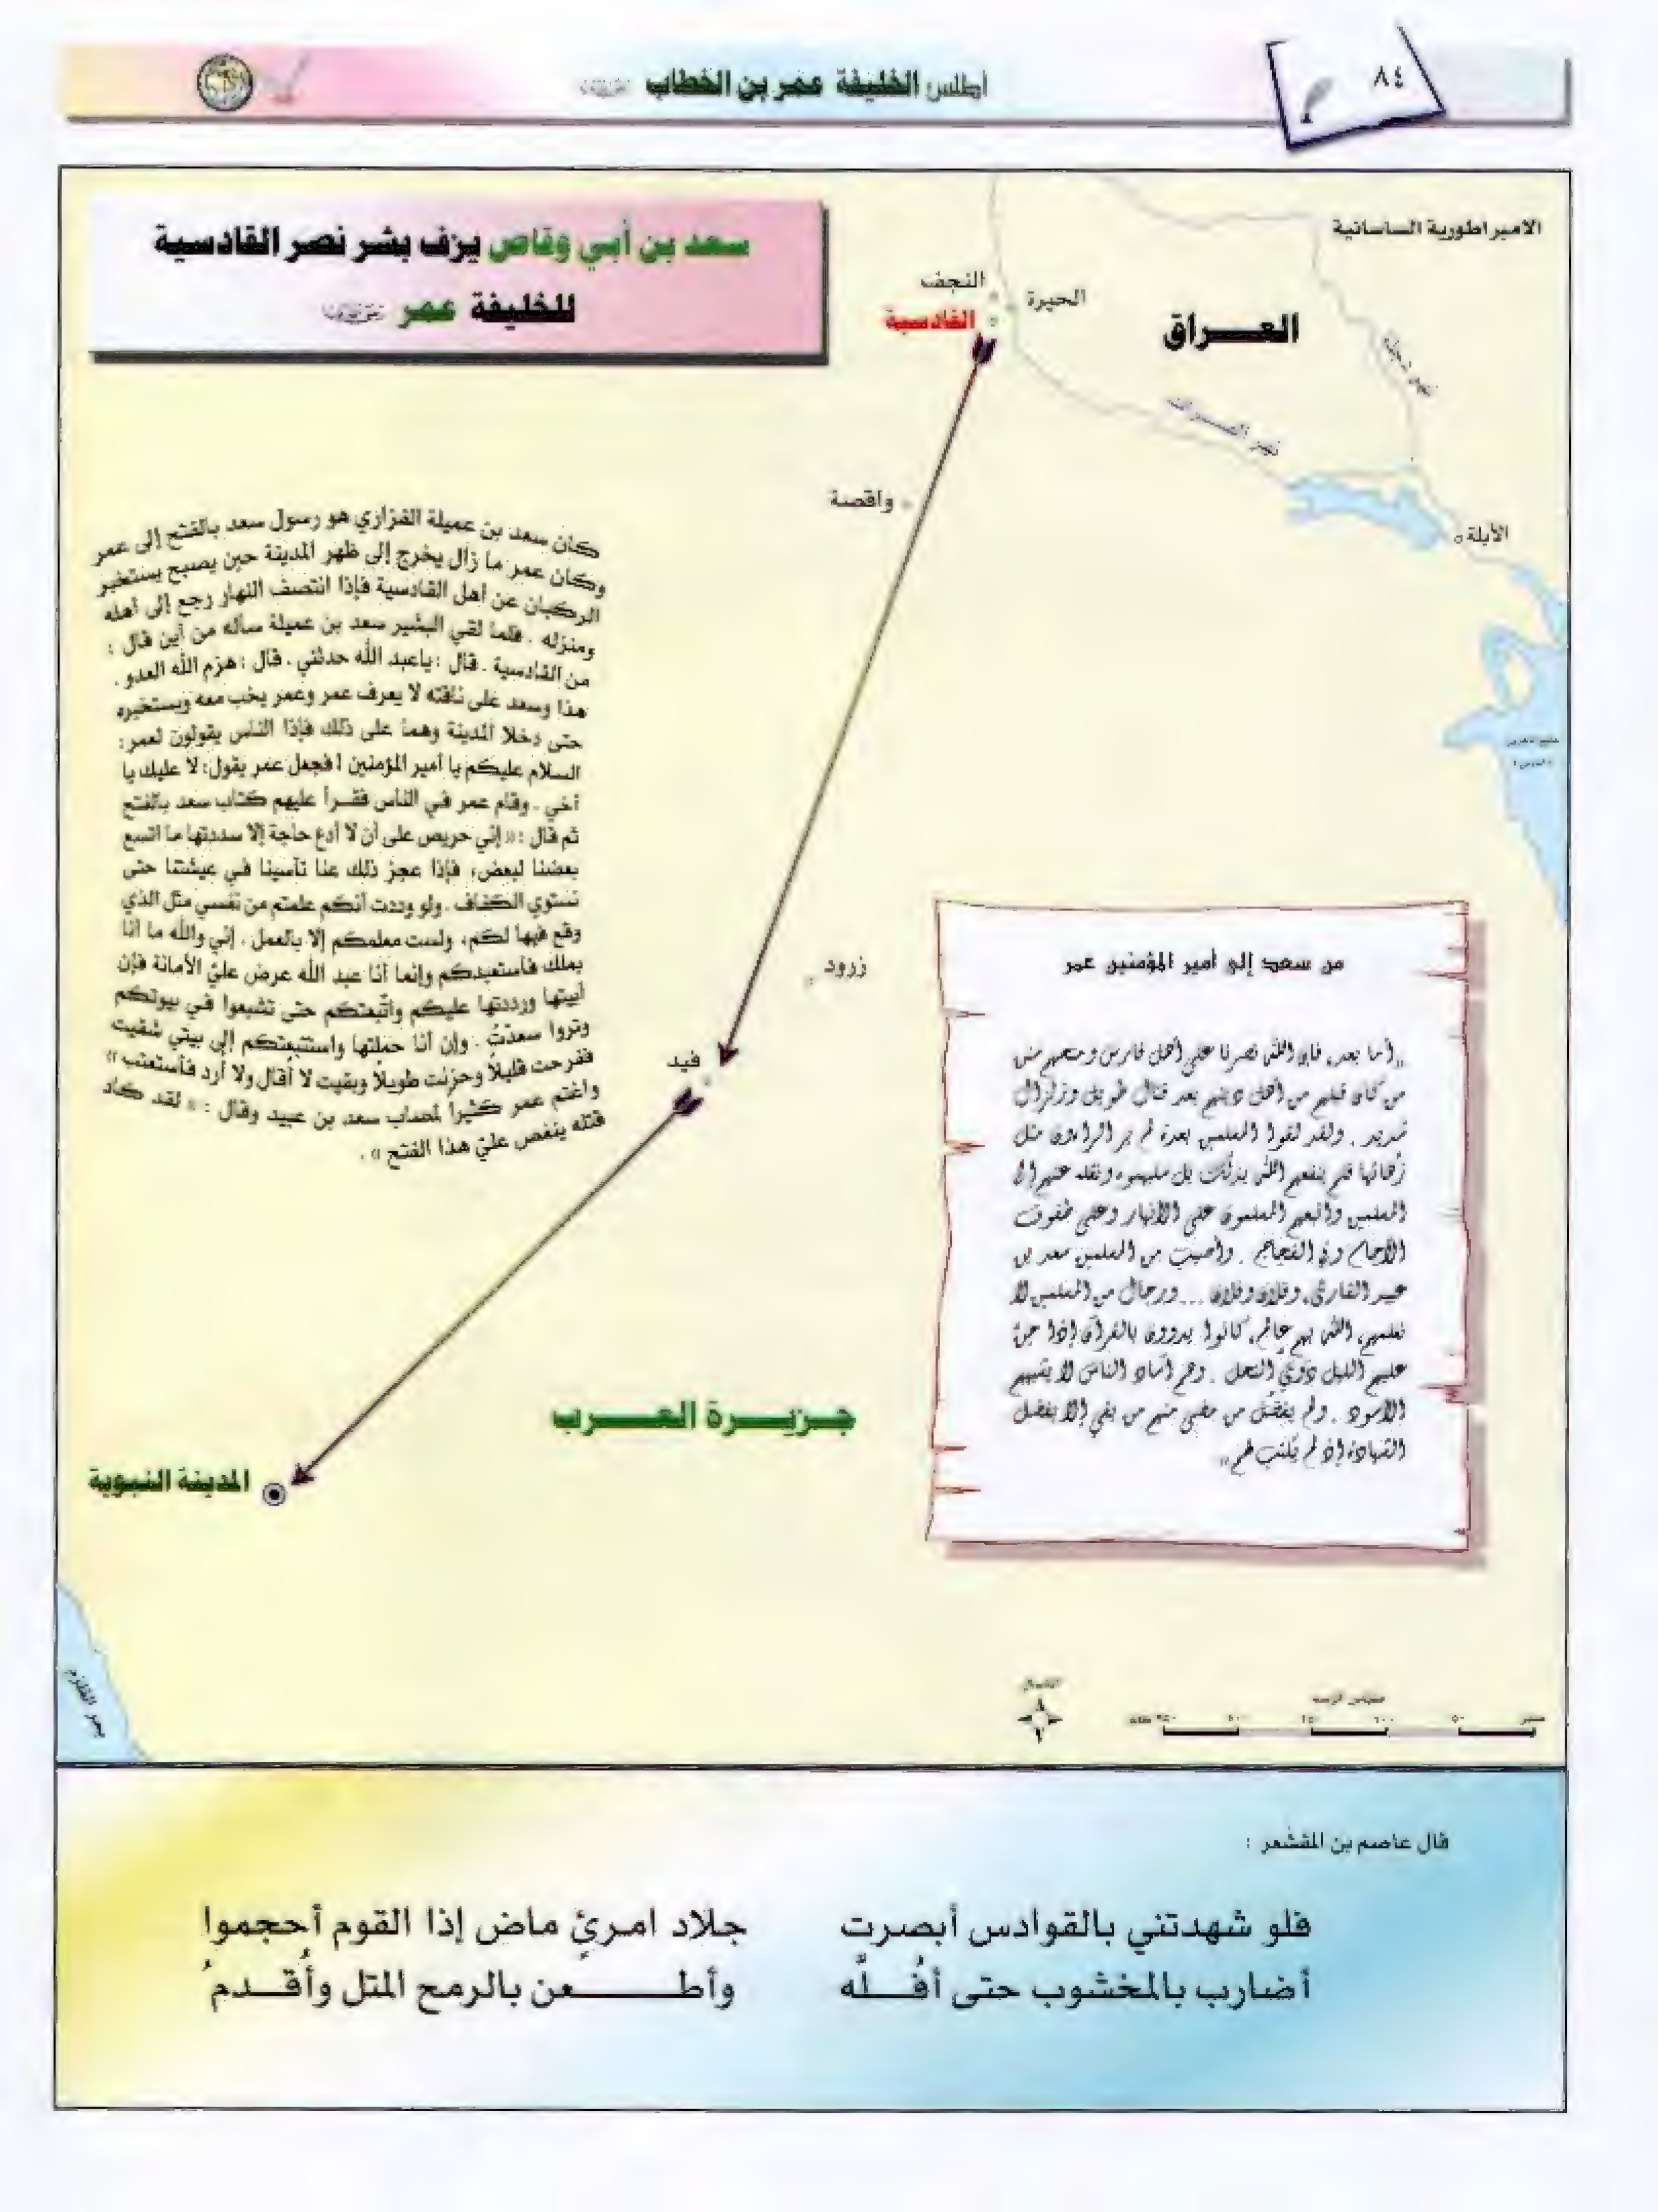 ٨٤
أطلس الخليفة عمر بن الخطاب
سعد بن أبي وقاص يزف بشر نصر القادسية
للخليفة عمر
الامبراطورية الساسانية
النجف
الحيرة
القادسية
العـــراق
نهر دجلة
نهر الفـــرات
واقصة
الأبلة
كان سعد بن عميلة الفزاري هو رسول سعد بالفتح إلى عمر
وكان عمر ما زال يخرج إلى ظهر المدينة حين يصبح يستخبر
الركبان عن أهل القادسية فإذا انتصف النهار رجع إلى أهله
ومنزله . فلما لقي البشير سعد بن عميلة سأله من أين قال :
من القادسية . قال : ياعبد الله حدثني . قال : هزم الله العدو .
هذا وسعد على ناقته لا يعرف عمر وعمر يخب معه ويستخبره
حتى دخلا المدينة وهما على ذلك فإذا الناس يقولون لعمر :
السلام عليكم يا أمير المؤمنين ! فجعل عمر يقول : لا عليك يا
أخي . وقام عمر في الناس فقــرأ عليهم كتاب سعد بالفتح
ثم قال : « إني حريص على أن لا أدع حاجة إلا سددتها ما اتسع
بعضنا لبعض، فإذا عجز ذلك عنا تأسينا في عيشتنا حتى
نستوي الكفاف . ولو وددت أنكم علمتم من نفسي مثل الذي
وقع فيها لكم، ولست معلمكم إلا بالعمل . إني والله ما أنا
بملك فأستعبدكم وإنما أنا عبد الله عرض عليّ الأمانة فإن
أبيتها ورددتها عليكم واتّبعتكم حتى تشبعوا في بيوتكم
وتروا سعدتُ . وإن أنا حملتها واستتبعتكم إلى بيتي شقيت
ففرحت قليلاً وحزنت طويلاً وبقيت لا أُقال ولا أرد فأستعتب »
واغتم عمر كثيراً لمصاب سعد بن عبيد وقال : « لقد كاد
قتله ينغص عليّ هذا الفتح » .
زرود
فيد
من سعد إلى أمير المؤمنين عمر
«أما بعد، فإن الله نصرنا على أهل فارس ومنحهم سنن
من كان قبلهم من أهل دينهم بعد قتال طويل وزلزال
شديد . ولقد لقوا المسلمين بعدة لم ير الراءون مثل
زُهائها فلم ينفعهم الله بذلك بل سلبهموه ونقله عنهم إلى
المسلمين واتبعهم المسلمون على الأنهار وعلى طفوف
الآجام وفي الفجاج . وأصيب من المسلمين سعد بن
عبيد القارئ، وفلان وفلان ... ورجال من المسلمين لا
نعلمهم، الله بهم عالم، كانوا يدوون بالقرآن إذا جنّ
عليهم الليل دَوِيّ النحل . وهم آساد الناس لا يشبههم
الأسود . ولم يفضُل من مضى منهم من بقي إلا بفضل
الشهادة إذ لم تُكتب لهم»
جـزيــــرة العــــرب
المدينة النبوية
بحر القلزم
الشمال
مقياس الرسم
قال عاصم بن المقشعر :
فلو شهدتني بالقوادس أبصرت جلاد امـرئٍ ماض إذا القوم أحجموا
أضارب بالمخشوب حتى أفُــلَّه وأطـــــــعن بالرمح المتل وأُقـــدمُ